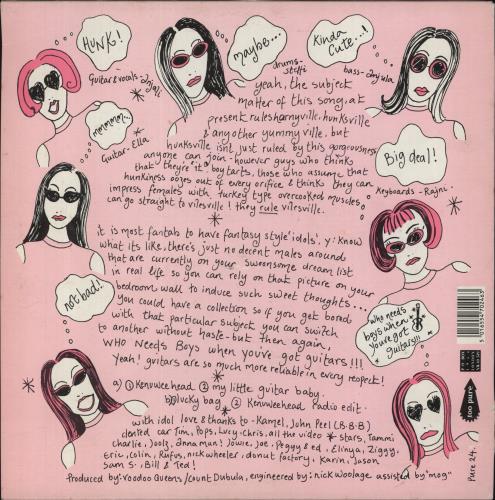 HUNK!
maybe...
Kinda
Cute...!
guitar & vocals - Anjali
drums-
steffi
bass - Anjula
mmmmm...
Guitar. Ella
Big deal!
Keyboards - Rajni.
not bad!
who needs
boys when
you've got
guitars!!!
yeah, the subject
matter of this song, at
present rules harnyville, hunksville
& any other yummyville. but
hunksville isnt just ruled by this gorgeousness
anyone can join - however guys who think
that they're 'it', boy tarts, those who assume that
hunkiness oozes out of every orifice & thinks they can
impress females with turkey type overcooked muscles,
can go straight to vilesville! they rule vilesville.
it is most fantab to have fantasy style 'idols', y'know
what its like, there's just no decent males around
that are currently on your sweensome dream list
in real life so you can rely on that picture on your
bedroom wall to induce such sweet thoughts...
You could have a collection so if you get bored
with that particular subject you can switch
to another without haste - but then again,
WHO NEEDS BOYS when you've got guitars!!!
Yeah! guitars are so much more reliable in every respect!
a) ① Kenuwee head ② my little guitar baby.
b) ① lucky bag ② Kenuwee head Radio edit.
with idol love & thanks to - Kamel, John Peel (B.B.B)
cleared oar Tim, Pops, Lucy - Chris, all the video * stars, Tammi
Charlie, Joolz, anna man! Jowie, Joe, Peggy & ed, Elinya, Ziggy,
Eric, Colin, Rufus, nick wheeler, donut factory, Karin, Jason
Sam S, Bill & Ted!
Produced by: Voodoo Queens / Count Dubula, engineered by: nick woolage assisted by "mog"
5 016554 702463
too pure
Pure 24.